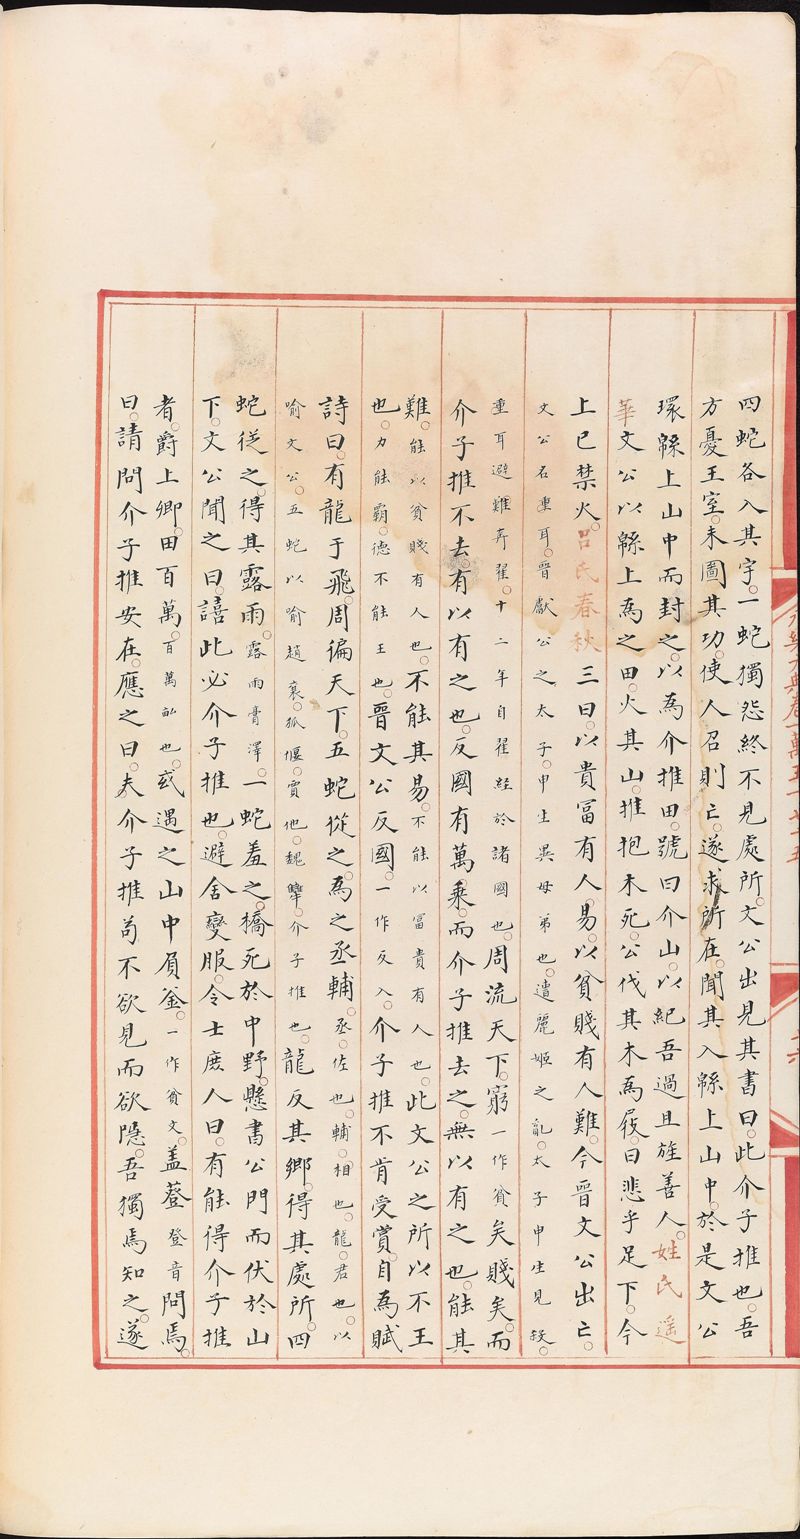 四蛇各入其宇。一蛇獨怨終不見處所。文公出見其書曰。此介子推也。吾
方憂王室。未圖其功。使人召則亡。遂求所在。聞其入緜上山中。於是文公
環緜上山中而封之。以為介推田。號曰介山。以紀吾過且旌善人。姓氏遥
華文公以緜上為之田。火其山。推抱木死。公伐其木為屐。曰悲乎足下。今
上巳禁火。吕氏春秋三曰。以貴冨有人易。以貧賤有人難。今晉文公出亡。
文公名重耳。晉獻公之太子。申生異母弟也。遭麗姬之亂。太子申生見殺。
重耳避難奔翟。十二年自翟經於諸國也。周流天下。窮一作貧矣賤矣。而
介子推不去。有以有之也。反國有萬乘。而介子推去之。無以有之也。能其
難。能以貧賤有人也。不能其易。不能以冨貴有人也。此文公之所以不王
也。力能霸。德不能王也。晉文公反國。一作反入。介子推不肯受賞。自為賦
詩曰。有龍于飛。周徧天下。五蛇從之。為之丞輔。丞。佐也。輔。相也。龍。君也。以
喻文公。五蛇以喻趙衰。狐偃。賈他。魏犨。介子推也。龍反其鄉。得其處所。四
蛇從之。得其露雨。露雨膏澤。一蛇羞之。橋死於中野。懸書公門而伏於山
下。文公聞之曰。譆此必介子推也。避舍變服。令士庶人曰。有能得介子推
者。爵上卿。田百萬。百萬畝也。或遇之山中負釜。一作貧文。盖簦登音問焉。
曰。請問介子推安在。應之曰。夫介子推苟不欲見而欲隱。吾獨焉知之。遂